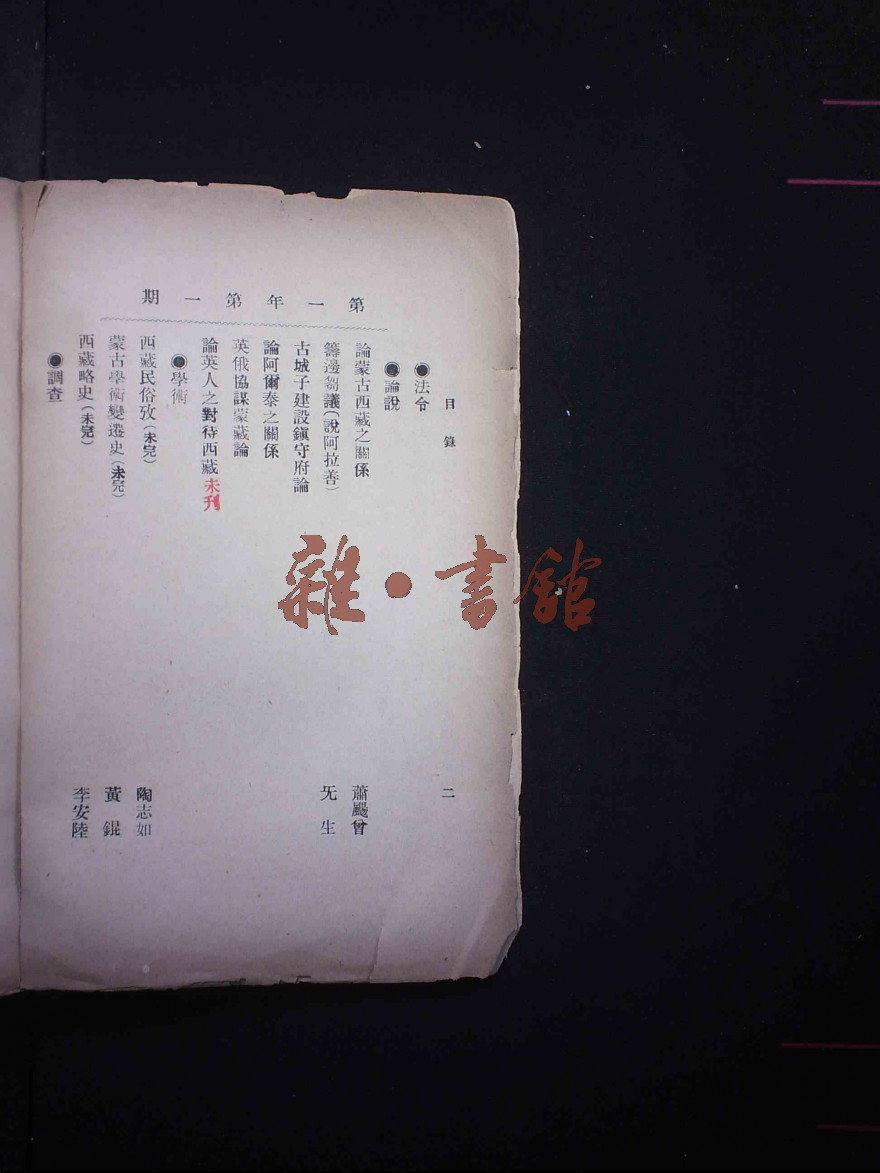 目錄
二
第一年第一期
●法令
●論說
論蒙古西藏之關係 蕭颺曾
籌邊芻議(說阿拉善) 旡生
古城子建設鎮守府論
論阿爾泰之關係
英俄協謀蒙藏論
論英人之對待西藏 未刊
●學術
西藏民俗攷(未完) 陶志如
蒙古學術變遷史(未完) 黃錕
西藏略史(未完) 李安陸
●調查
雜·書館